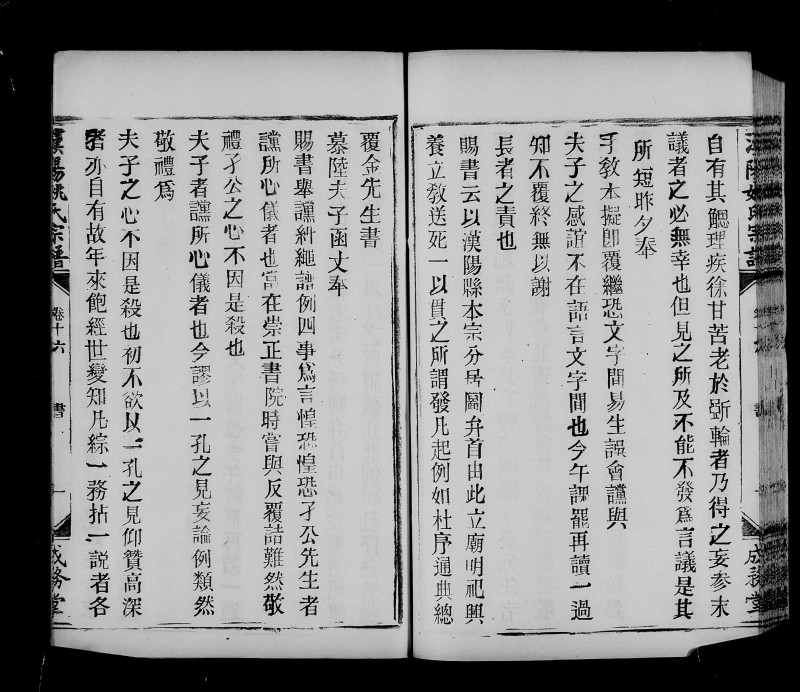 漢陽姚氏宗譜
成務堂
自有其鰓理疾徐甘苦老於斵輪者乃得之妄參末
議者之必無幸也但見之所及不能不發爲言議是其
所短昨夕奉
手敎本擬卽覆繼恐文字間易生誤會讜與
夫子之感誼不在語言文字間也今午課罷再讀一過
知不覆終無以謝
長者之責也
賜書云以漢陽縣本宗分居圖弁首由此立廟明祀興
養立敎送死一以貫之所謂發凡起例如杜序通典總
覆金先生書
慕陸夫子函丈奉
賜書舉讜糾繩譜例四事爲言惶恐惶恐孑公先生者
讜所心儀者也當在崇正書院時嘗與反覆詰難然敬
禮孑公之心不因是殺也
夫子者讜所心儀者也今謬以一孔之見妄論例類然
敬禮爲
夫子之心不因是殺也初不欲以一孔之見仰贊高深
者亦自有故年來飽經世變知凡綜一務拈一説者各
漢陽姚氏宗譜
卷十六
書
一
成務堂